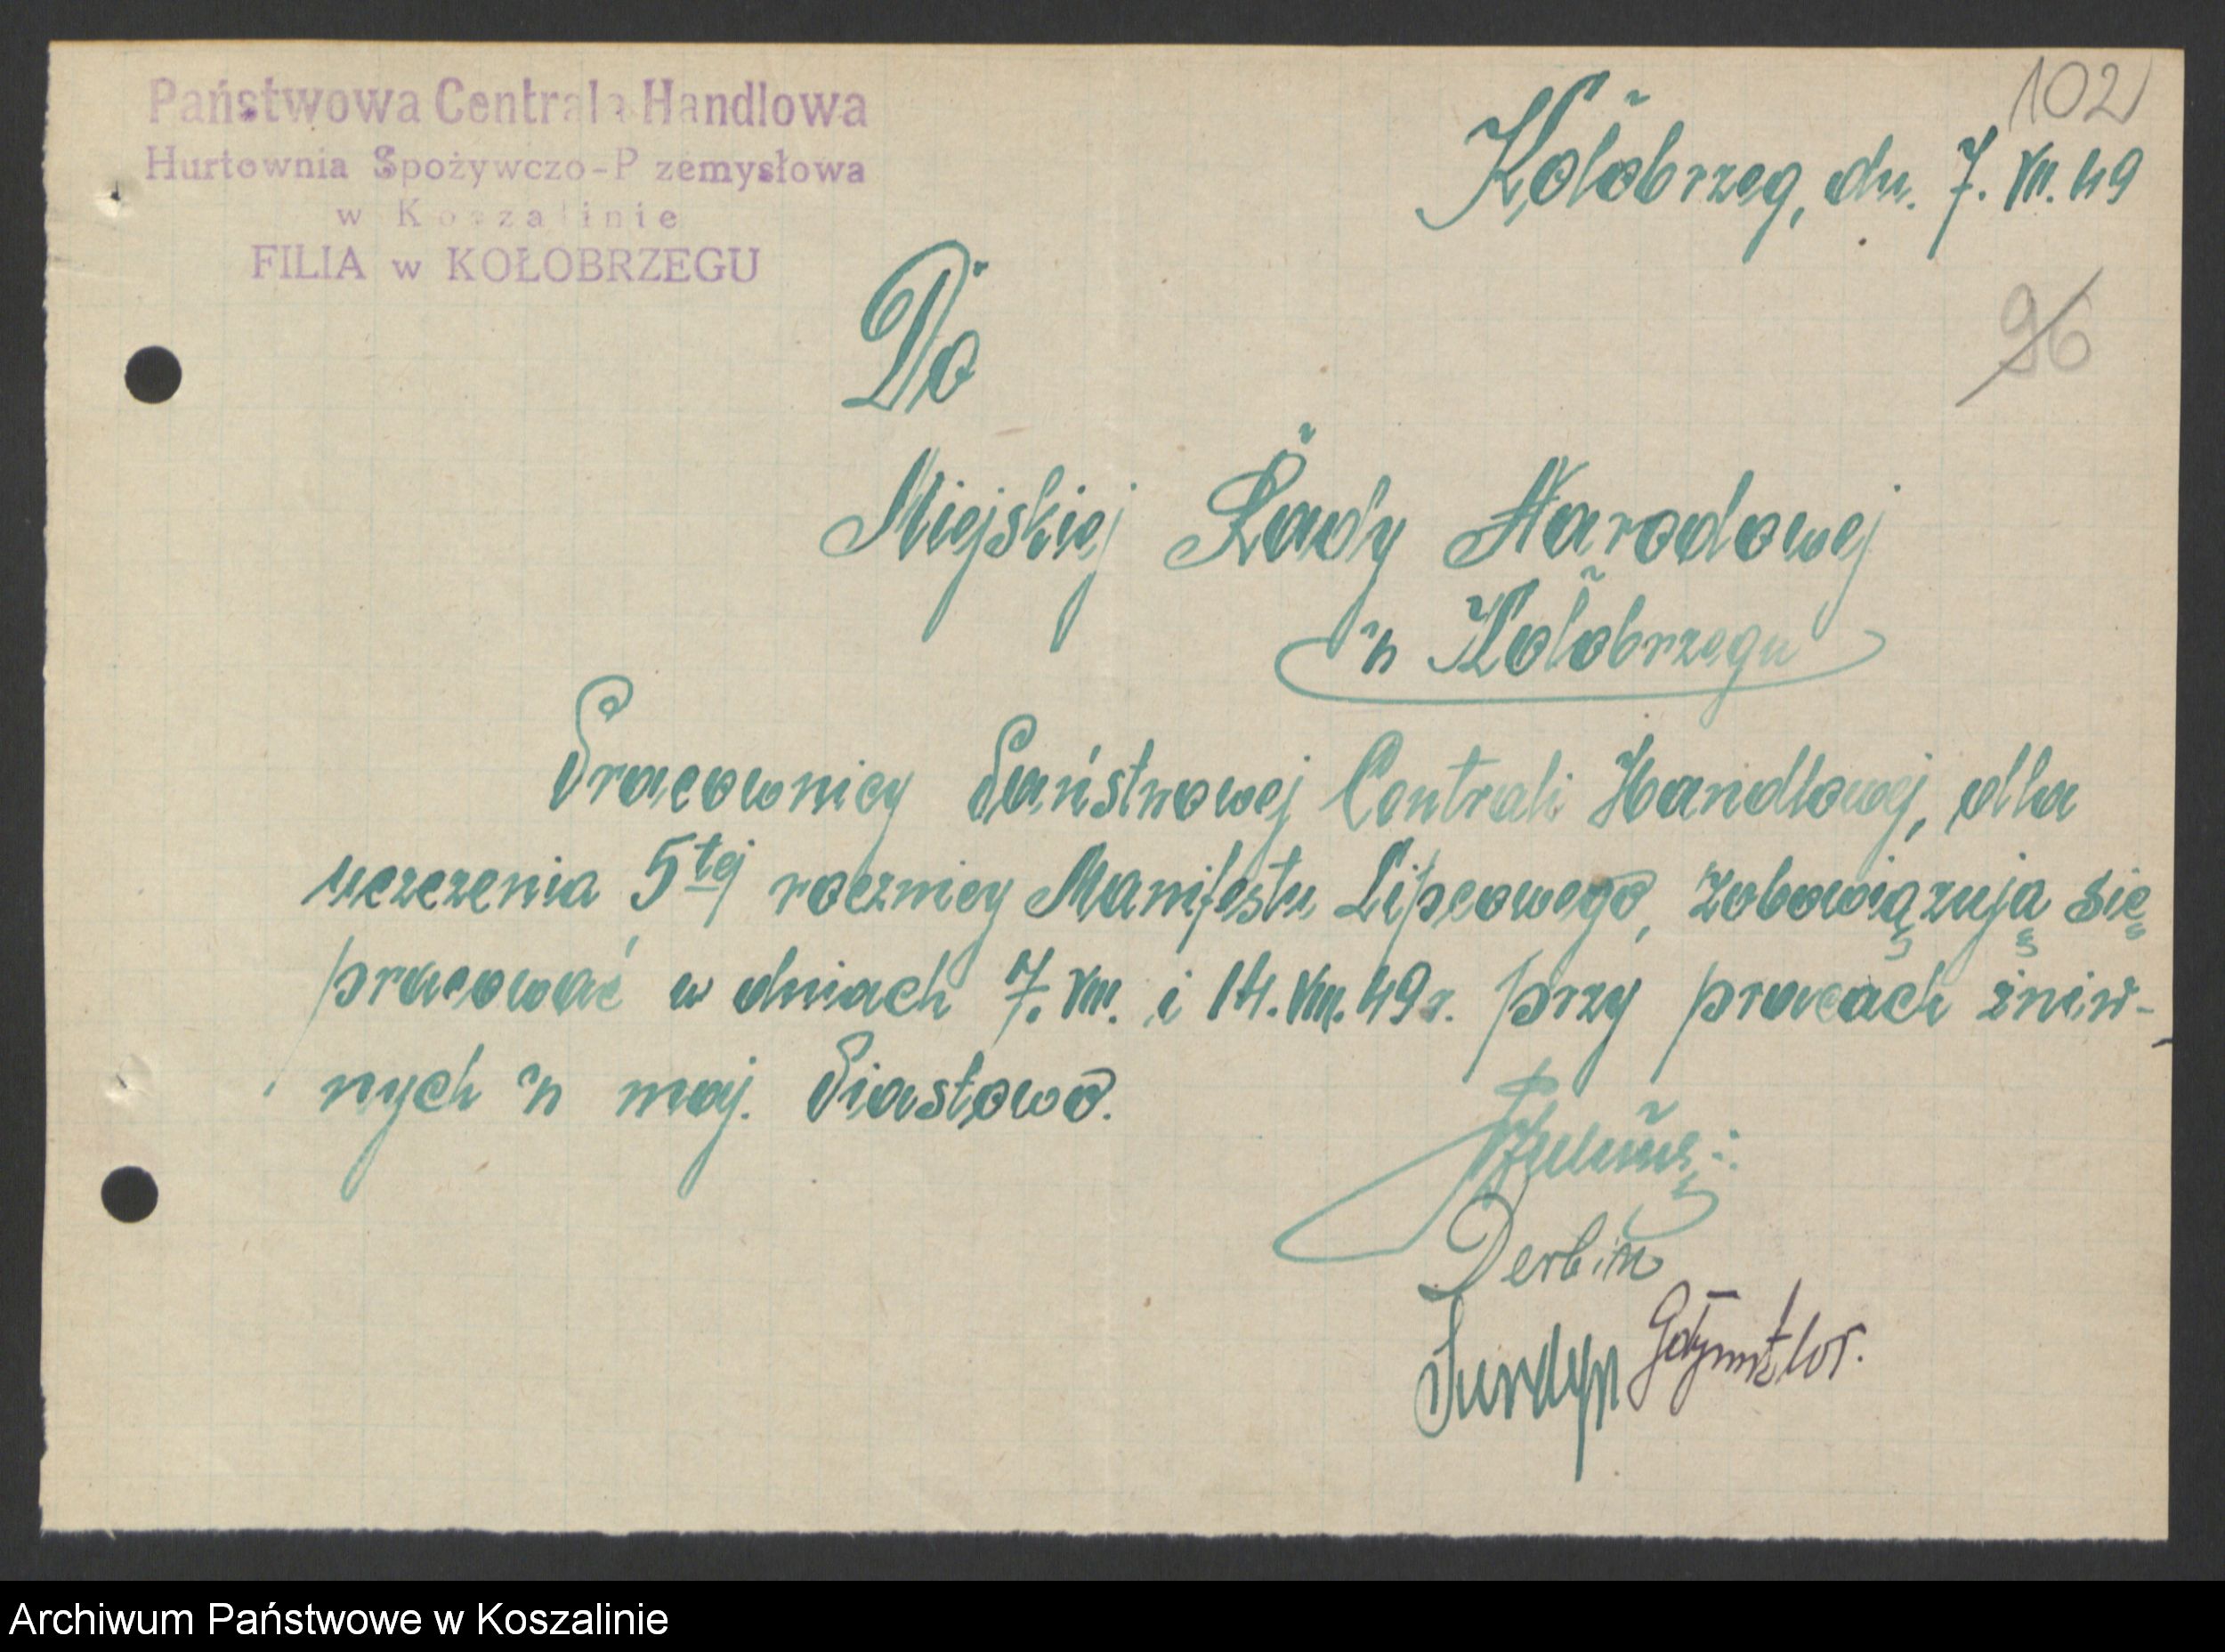 102
Państwowa Centrala Handlowa
Hurtownia Spożywczo-P zemysłowa
w Koszalinie
FILIA w KOŁOBRZEGU
Kołobrzeg, dn. 7. VII. 49
96
Do
Miejskiej Rady Narodowej
w Kołobrzegu
Pracownicy Państwowej Centrali Handlowej, dla
uczczenia 5tej rocznicy Manifestu Lipcowego, zobowiązują się
pracować w dniach 7. VIII. i 14. VIII. 49 r. przy pracach żniw-
nych w maj. Piastowo.
Derbin
Archiwum Państwowe w Koszalinie